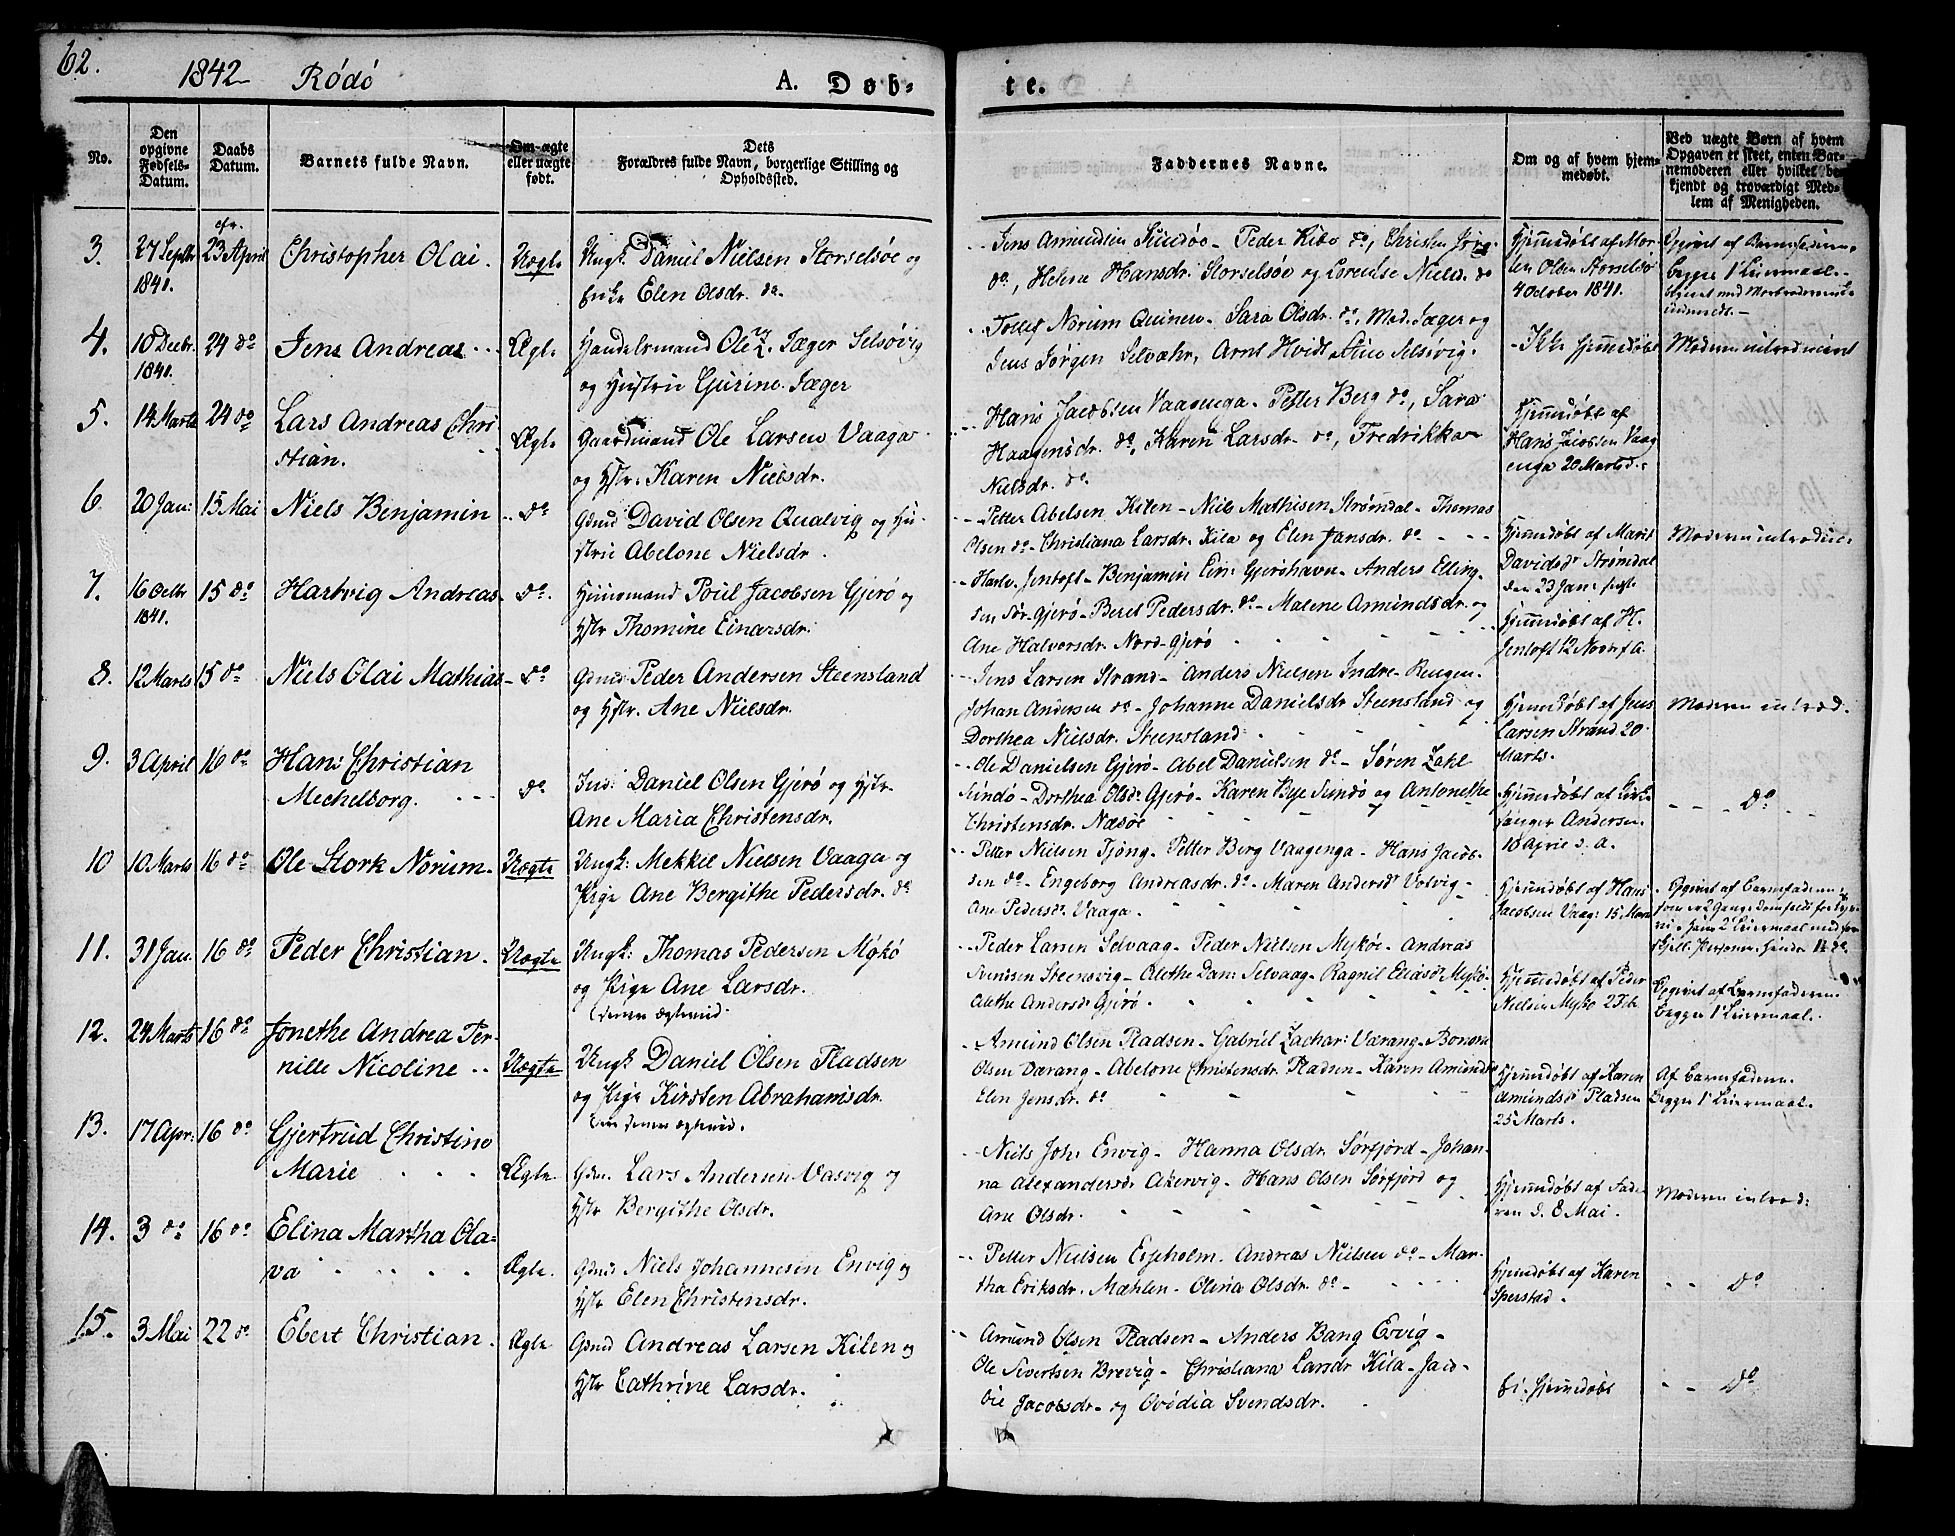 62.
1842 Rödö
A. Døb-
te.
No.
Den opgivne Fødsels-Datum.
Daabs Datum.
Barnets fulde Navn.
Om ægte eller uægte født.
Dets Forældres fulde Navn, borgerlige Stilling og Opholdssted.
Faddernes Navne.
Om og af hvem hjem-medøbt.
Ved uægte Børn af hvem Opgaven er skeet, enten Bar-nemoderen eller hvilket be-kjendt og troværdigt Med-lem af Menigheden.
3. 27 Septbr 1841. 23 April Christopher Olai. Uægte
Ungk. Daniel Nielsen Storselsöe og
Enke Elen Olsdr. do.
Jens Amundsen Sundöe - Peder Kibo do, Christen Jörg.
do, Helene Hansdr. Storselsöe og Lorentse Nielsd. do
Hjemmedöbt af Mor-
ten Olsen Storselsö
4 October 1841.
Opgivet af Barnefaderen.
Begges 1' Leiermaal.
4. 10 Decbr. 1841. 24 do Jens Andreas Ægte
Handelsmand Ole Jæger Selsövig
og Hustrue Gurine Jæger
Tollef Norum Quinen. Sara Olsdr. do. Mad. Jæger og
Jens Jörgen Selvær, Arnt Hvidt Stine Selsövig.
Ikke hjemmedöbt
Moderen introduceret
5. 14 Marts 24 do Lars Andreas Chri-
stian. Ægte
Gaardmand Ole Larsen Vaaga
og Hstr. Karen Nielsdr.
Hans Jacobsen Vaagenga - Petter Berg do, Sara
Haagensdr. do, Karen Larsdr. do, Fredrikka
Nielsdr. do
Hjemmedöbt af
Hans Jacobsen Vaag
enga 20 Marts
6. 20 Jan: 15 Mai Niels Benjamin do
Gdmd David Olsen Qualvig og Hu-
strue Abelone Nielsdr.
Petter Abelsen Kilen - Niels Mathisen Strömdal - Thomas
Olsen do - Christiana Larsdr. Kila og Elen Jansdr. do
Hjemmedöbt af Marit
Davidsdr Strömdal
den 23 Jan:
Moderen introduc:
7. 16 Octbr 1841. 15 do Hartvig Andreas do.
Huusmand Poul Jacobsen Gjerö og
Hstr Thomine Einarsdr.
Hartv. Jentoft - Benjamin Ein: Gjeröhavn - Anders Elling-
sen Sör-Gjerö - Beret Pedersdr. do - Malene Amundsdr. og
Ane Halvorsdr. Nord-Gjerö
Hjemmedöbt af H.
Jentoft 12 Novr f. A.
8. 12 Marts 15 do Niels Olai Mathias do
Gdmd Peder Andersen Steensland
og Hstr. Ane Nielsdr.
Jens Larsen Strand - Anders Nielsen Indre-Rengen.
Johan Andersen do - Johanne Danielsdr Steensland og
Dorthea Nielsdr. Steensland
Hjemmedöbt af Jens
Larsen Strand 20
Marts.
Moderen introd.
9. 3 April 16 do Hans Christian
Mechelborg. do
Daniel Olsen Gjerö og Hstr.
Ane Maria Christensdr.
Ole Danielsen Gjerö - Abel Danielsen do - Sören Zahl
Sundö - Dorthea Olsdr Gjerö - Karen Bye Sundö og Antonethe
Christensdr. Næsöe
Hjemmedöbt af Kirke
sanger Andersen
10 April s. a.
do
10 10 Marts 16 do Ole Stork Norum. Uægte
Ungk: Mekkel Nielsen Vaaga og
Pige Ane Bergithe Pedersdr. do
Petter Nielsen Tjöng - Petter Berg Vaagenga - Hans Jacob-
sen do - Engeborg Andreasdr. do - Maren Andersdr Valvig -
Ane Pedersdr Vaaga.
Hjemmedöbt af Hans
Jacobsen Vaag: 15 Marts
Opgivet af Barnefaderen
11. 31 Jan. 16 do Peder Christian. Uægte
Ungk: Thomas Pedersen Mykö
og Pige Ane Larsdr.
(denne ægteviid.
Peder Larsen Selvaag - Peder Nielsen Myköe - Andreas
Svendsen Steensvig - Alethe Dan: Selvaag - Ragnil Eliasdr Mykö -
Alethe Andersdr Gjerö.
Hjemmedöbt af Peder
Nielsen Mykö 2 Feb
Opgivet af Barnefaderen
Begges 1' Leiermaal.
12. 24 Marts 16 do Jonethe Andrea Per-
nille Nicoline Uægte
Ungk Daniel Olsen Pladsen
og Pige Kirsten Abrahamsdr.
Amund Olsen Pladsen - Gabriel Zachar: Værang - Bonsak
Olsen Værang - Abelone Christensdr. Pladsen - Karen Amundsdr
Elen Jensdr. do
Hjemmedöbt af Karen
Amundsdr Pladsen
25 Marts.
Af Barnefaderen.
Begges 1' Leiermaal.
13. 17 Apr: 16 do Gjertrud Christine
Marie Ægte
Gdm. Lars Andersen Vasvig og
Hstr Bergithe Olsdr.
Niels Joh: Envig - Hanna Olsdr Sörfjord - Johan-
na Alexandersdr Akervig - Hans Olsen Sörfjord og
Ane Olsdr.
Hjemmedöbt af Fade-
ren d. 8 Mai.
Moderen introd:
14. 3 do 16 do Elina Martha Ola-
va Ægte.
Gdmd Niels Johannesen Envig og
Hstr Elen Christensdr.
Petter Nielsen Esjeholm. Andreas Nielsen do - Mar-
tha Eriksdr. Mæhlen - Olena Olsdr. do -
Hjemdöbt af Karen
Sperstad.
do
15. 3 Mai 22 do Ebert Christian. Ægte
Gdmd Andreas Larsen Kilen og
Hstr Cathrine Larsdr.
Amund Olsen Pladsen - Anders Bang Ervig -
Ole Sivertsen Brevig - Christiana Larsdr Kila - Jaco-
bie Jacobsdr - og Ovidia Svendsdr.
Ei hjemmedöbt
do